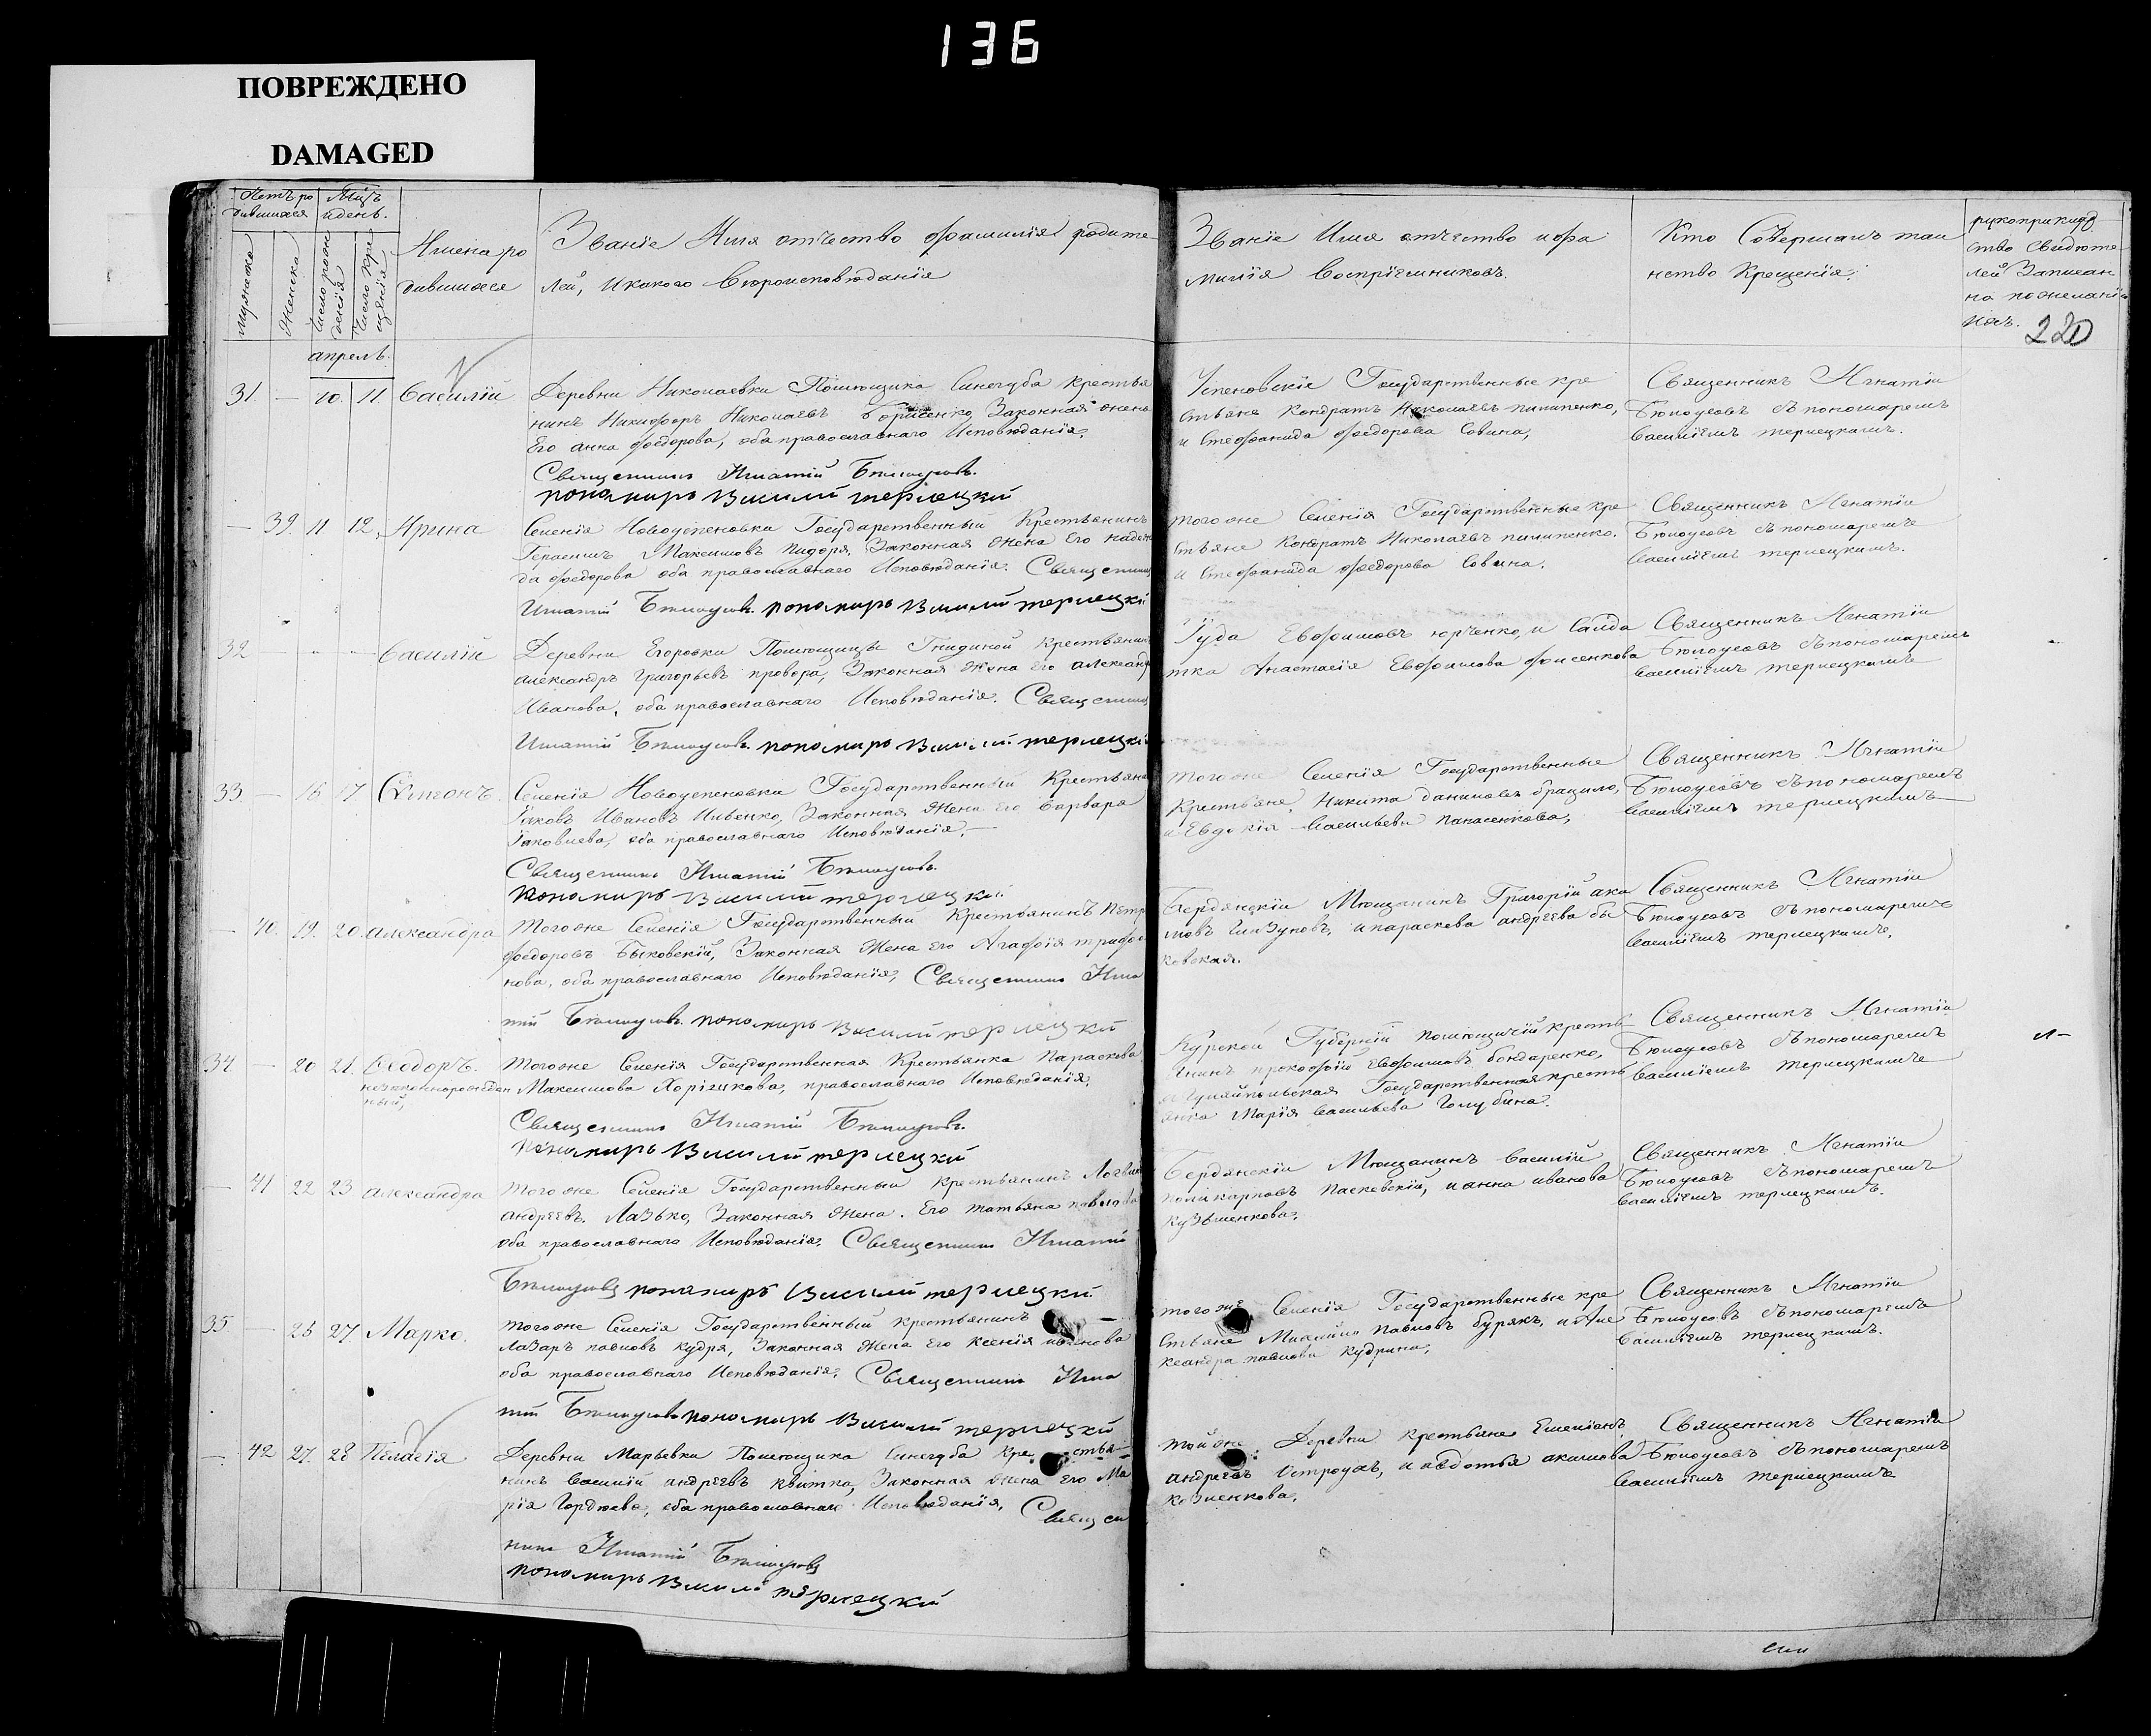 136
ПОВРЕЖДЕНО
DAMAGED
Мужска
Женска
Мцъ
и день.
Число рож
денія
Число кре
щенія
Имена ро
дившихся
Званіе Имя отчество фамилія родите
лей, и какого Вѣроисповѣданія
Званіе Имя отчество и фа
милія Воспріемниковъ.
Кто Совершалъ таи
нство Крещенія.
рукоприклад
ство Свидѣте
лей Записан
но по желанію
ихъ.
220
апрель.
31. — 10. 11. Василій
Деревни Николаевки Помѣщика Синегуба Крестья
нинъ Никифоръ Николаевъ Борисенко, Законная жена
Его анна федорова, оба православнаго Исповѣданія.
Священникъ Игнатій Бѣлоусовъ.
пономарь Василій терлецкій
Успеновскіе Государственные кре
стьяне Кондратъ Николаевъ пилипенко,
и Стефанида федорова Совина,
Священникъ Игнатіи
Бѣлоусовъ съ пономаремъ
Василіемъ терлецкимъ.
— 39. 11 12, Ирина
Селенія Новоуспеновки Государственный Крестьянинъ
Герасимъ Максимовъ Законная Жена Его надеж
да федорова оба православнаго Исповѣданія. Священникъ
Игнатій Бѣлоусовъ. пономарь Василій терлецкій
того же Селенія Государственные кре
стьяне Кондратъ Николаевъ пилипенко.
и Стефанида федорова Совина.
Священникъ Игнатіи
Бѣлоусовъ съ пономаремъ
Василіемъ терлецкимъ.
32 — " — Василій
Деревни Егоровки Помѣщицы Гнидиной крестьянинъ
александръ григорьевъ провора, Законная Жена его александра
Иванова, оба православнаго Исповѣданія. Священникъ
Игнатій Бѣлоусовъ. пономарь Василій терлецкій
Іуда Евфимовъ юрченко, и Салда
тка Анастасія Евфимова фисенкова
Священникъ Игнатіи
Бѣлоусовъ съ пономаремъ
Василіемъ терлецкимъ
33 — 16 17 Симеонъ.
Селенія Новоуспеновки Государственный Крестьяне
Іаковъ Ивановъ Ивенко, Законная Жена его Варвара
Іаковлева, оба православнаго Исповѣданія. —
Священникъ Игнатій Бѣлоусовъ.
пономарь Василій терлецкій.
того же Селенія Государственные
Крестьяне, Никита даниловъ
и Евдокія Васильева панасенкова,
Священникъ Игнатіи
Бѣлоусовъ съ пономаремъ
Василіемъ терлецкимъ
— 40. 19. 20. александра
Того же Селенія Государственный Крестьянинъ Петръ
федоровъ Быковскій, Законная Жена его Агафія трифо
нова, оба православнаго Исповѣданія, Священникъ Игна
тій Бѣлоусовъ. пономарь Василій терлецкій
Бердянскіи Мещанинъ Григорій аки
мовъ и параскева андреева бы
ковская.
Священникъ Игнатіи
Бѣлоусовъ съ пономаремъ
Василіемъ терлецкимъ.
34 — 20 21. Ѳеодоръ.
незаконнорожден
ный,
Того же Селенія Государственная Крестьянка параскева
Максимова православнаго Исповѣданія.
Священникъ Игнатій Бѣлоусовъ.
пономарь Василій терлецкій
Курской Губерніи помѣщичій кресть
янинъ прокофій Евфимовъ бондаренко,
и Гуляйпольская Государственная кресть
янка Марія Васильева Голубина.
Священникъ Игнатіи
Бѣлоусовъ съ пономаремъ
Василіемъ терлецкимъ
— 41 22 23 александра
того же Селенія Государственный крестьянинъ
андреевъ Лазько, Законная Жена Его татьяна павлова
оба православнаго Исповѣданія. Священникъ Игнатій
Бѣлоусовъ пономарь Василій терлецкій.
Бердянскіи Мещанинъ Василій
поликарповъ Паскевскій, и анна иванова
Кузьменкова.
Священникъ Игнатіи
Бѣлоусовъ съ пономаремъ
Василіемъ терлецкимъ.
35 — 27. Марко.
того же Селенія Государственный крестьянинъ —
Лазарь павловъ кудря, Законная Жена его ксенія иванова
оба православнаго Исповѣданія. Священникъ Игна
тій Бѣлоусовъ пономарь Василій терлецкій
того же Селенія Государственные кре
стьяне павловъ бурякъ, и Але
ксандра павлова Кудрина,
Священникъ Игнатіи
Бѣлоусовъ съ пономаремъ
Василіемъ терлецкимъ.
— 42 27. 28 Пелагія
Деревни Марьевки Помѣщика Синегуба Кре стья
нинъ Василій андреевъ квитка, Законная жена Его Ма
рія Гордѣева, оба православнаго Исповѣданія, Священ
никъ Игнатій Бѣлоусовъ
пономарь Василій терлецкій
той же Деревни крестьяне Емеліанъ
андреевъ Остроухъ, и авдотья акимова
козленкова.
Священникъ Игнатіи
Бѣлоусовъ съ пономаремъ
Василіемъ терлецкимъ